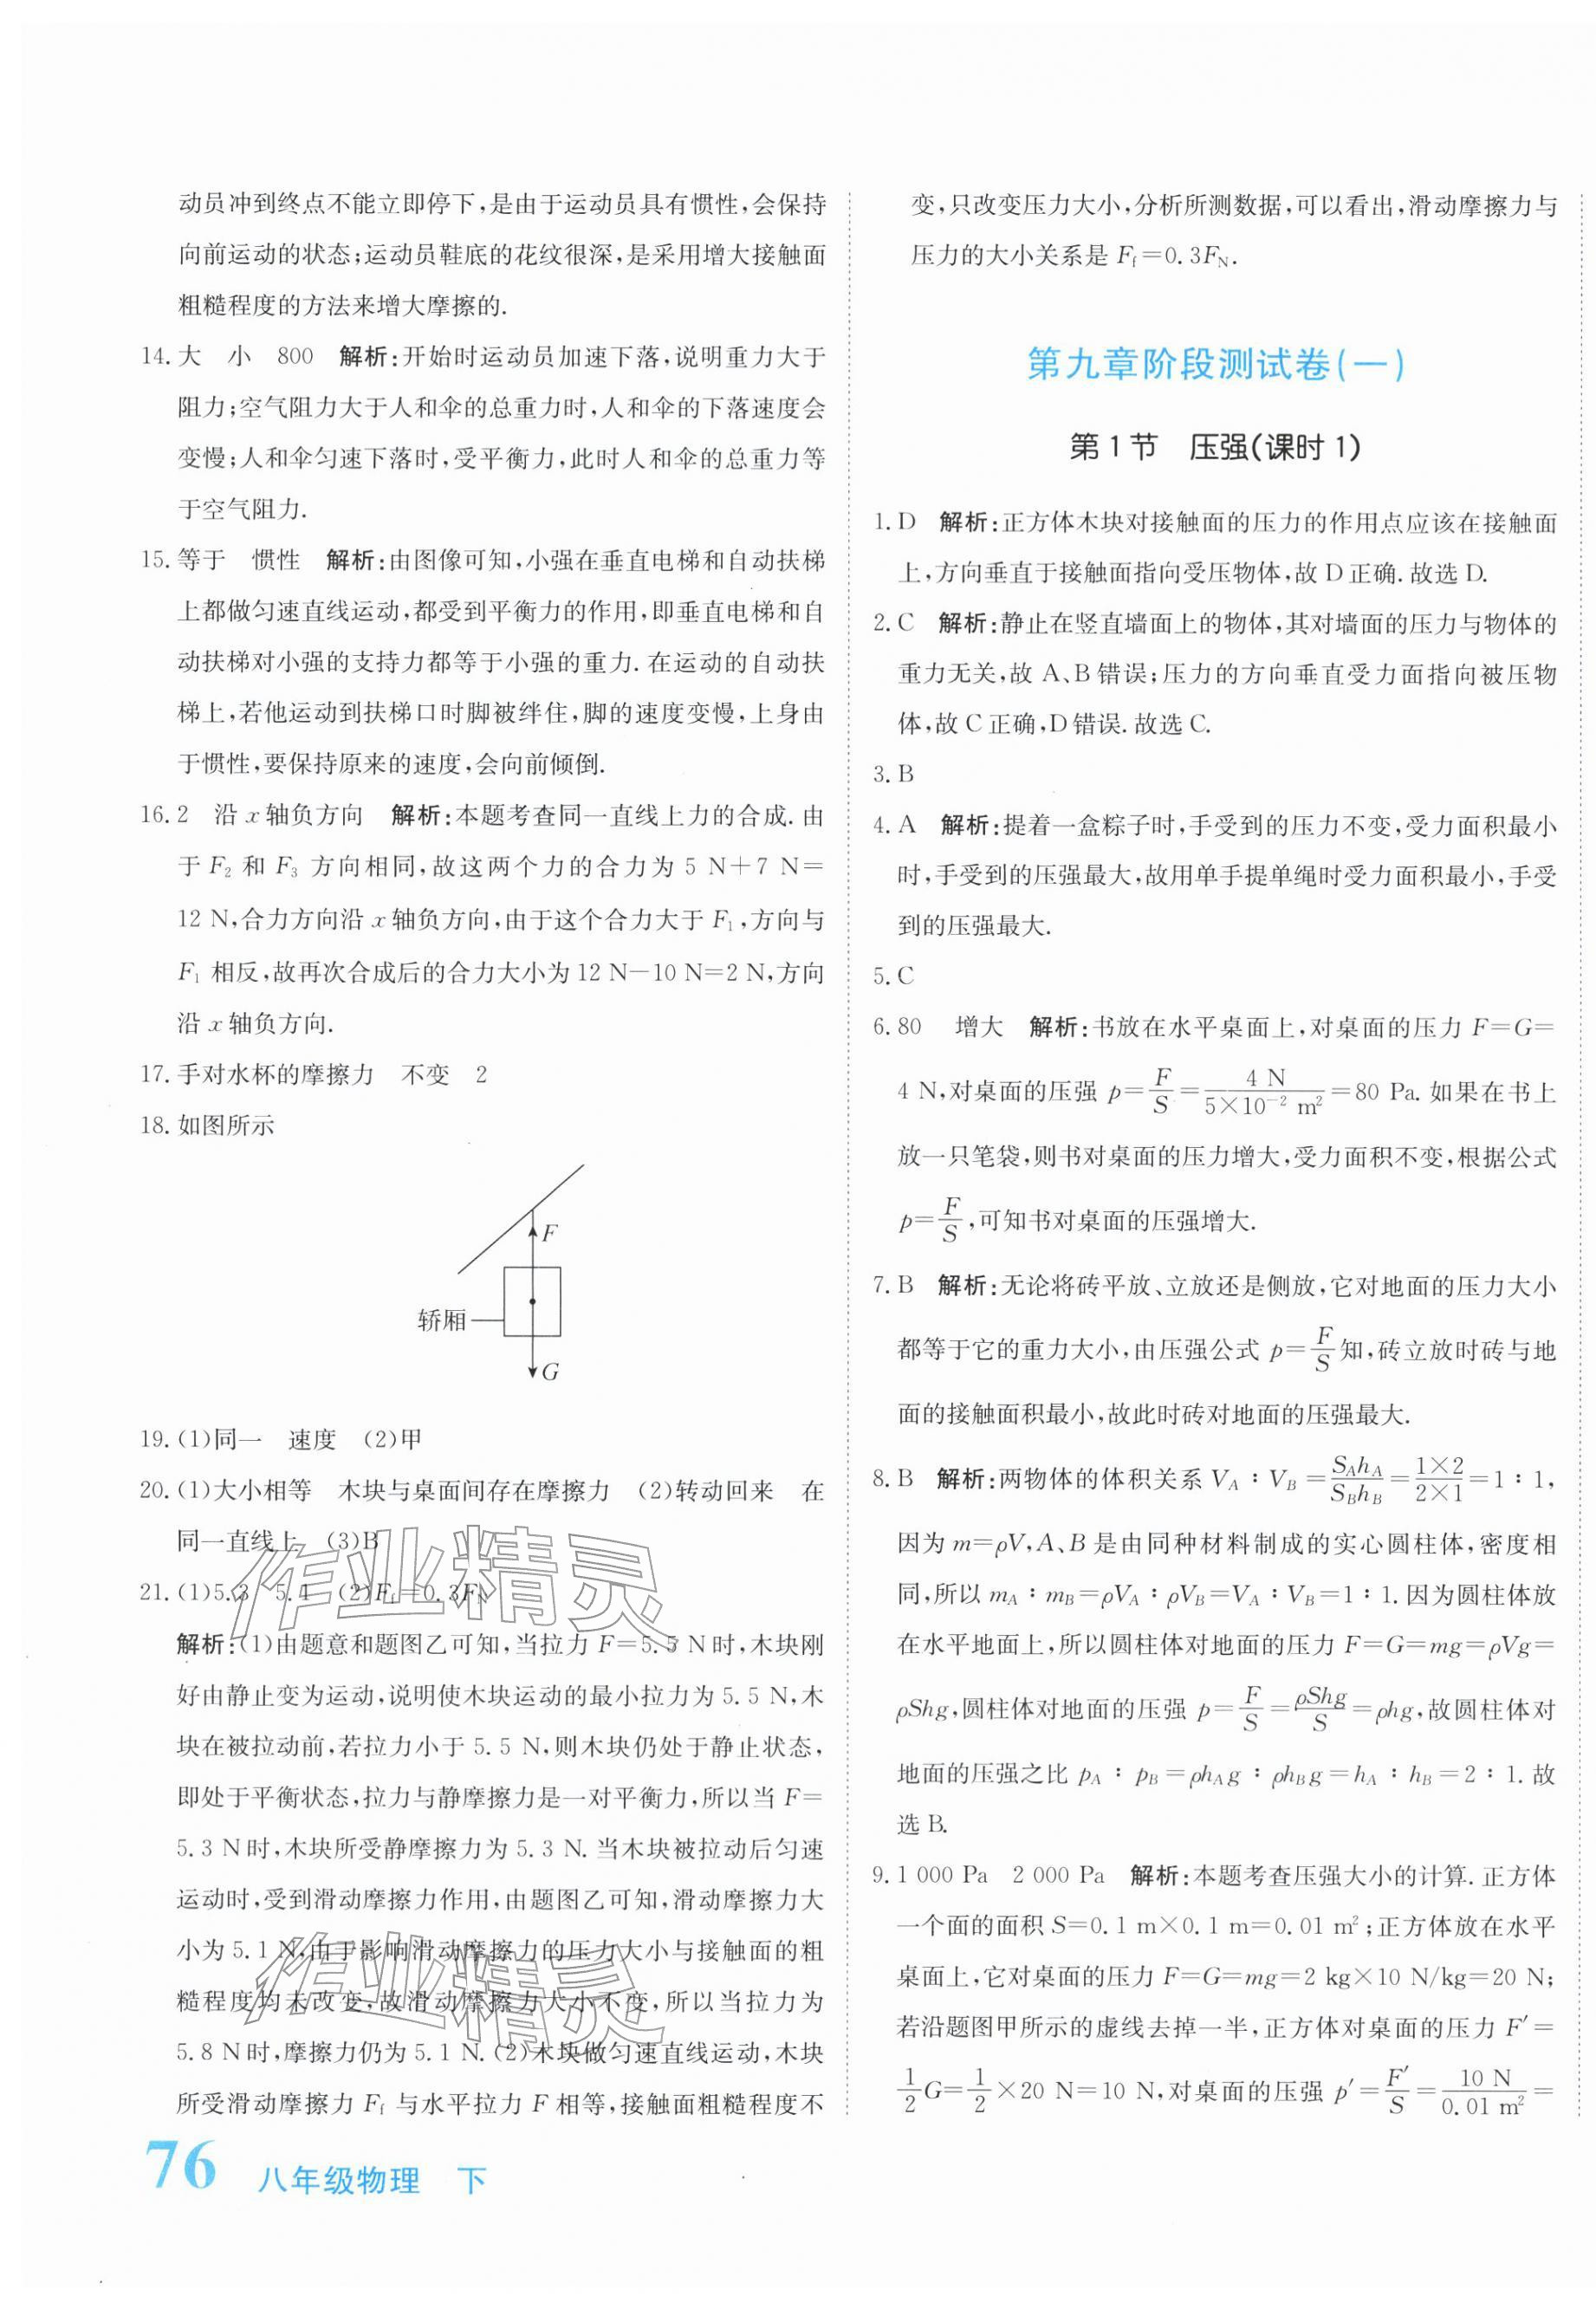 动员冲到终点不能立即停下,是由于运动员具有惯性,会保持
向前运动的状态;运动员鞋底的花纹很深,是采用增大接触面
粗糙程度的方法来增大摩擦的.
14. 大 小 800 解析:开始时运动员加速下落,说明重力大于
阻力;空气阻力大于人和伞的总重力时,人和伞的下落速度会
变慢;人和伞匀速下落时,受平衡力,此时人和伞的总重力等
于空气阻力.
15. 等于 惯性 解析:由图像可知,小强在垂直电梯和自动扶梯
上都做匀速直线运动,都受到平衡力的作用,即垂直电梯和自
动扶梯对小强的支持力都等于小强的重力.在运动的自动扶
梯上,若他运动到扶梯口时脚被绊住,脚的速度变慢,上身由
于惯性,要保持原来的速度,会向前倾倒.
16. 2 沿 x 轴负方向 解析:本题考查同一直线上力的合成.由
于 F₂ 和 F₃ 方向相同,故这两个力的合力为 5 N+7 N=
12 N,合力方向沿 x 轴负方向,由于这个合力大于 F₁,方向与
F₁ 相反,故再次合成后的合力大小为 12 N-10 N=2 N,方向
沿 x 轴负方向.
17. 手对水杯的摩擦力 不变 2
18. 如图所示
F
轿厢
G
19. (1)同一 速度 (2)甲
20. (1)大小相等 木块与桌面间存在摩擦力 (2)转动回来 在
同一直线上 (3)B
21. (1)5.3 5.1 (2)Ff=0.3FN
解析:(1)由题意和题图乙可知,当拉力 F=5.5 N时,木块刚
好由静止变为运动,说明使木块运动的最小拉力为 5.5 N,木
块在被拉动前,若拉力小于 5.5 N,则木块仍处于静止状态,
即处于平衡状态,拉力与静摩擦力是一对平衡力,所以当 F=
5.3 N时,木块所受静摩擦力为 5.3 N.当木块被拉动后匀速
运动时,受到滑动摩擦力作用,由题图乙可知,滑动摩擦力大
小为 5.1 N,由于影响滑动摩擦力的压力大小与接触面的粗
糙程度均未改变,故滑动摩擦力大小不变,所以当拉力为
5.8 N时,摩擦力仍为 5.1 N.(2)木块做匀速直线运动,木块
所受滑动摩擦力 Ff 与水平拉力 F 相等,接触面粗糙程度不
作业精灵
作业精灵
76 八年级物理 下
变,只改变压力大小,分析所测数据,可以看出,滑动摩擦力与
压力的大小关系是 Ff=0.3FN.
第九章阶段测试卷(一)
第1节 压强(课时1)
1. D 解析:正方体木块对接触面的压力的作用点应该在接触面
上,方向垂直于接触面指向受压物体,故 D 正确.故选 D.
2. C 解析:静止在竖直墙面上的物体,其对墙面的压力与物体的
重力无关,故 A、B 错误;压力的方向垂直受力面指向被压物
体,故 C 正确,D 错误.故选 C.
3. B
4. A 解析:提着一盒粽子时,手受到的压力不变,受力面积最小
时,手受到的压强最大,故用单手提单绳时受力面积最小,手受
到的压强最大.
5. C
6. 80 增大 解析:书放在水平桌面上,对桌面的压力 F=G=
4 N,对桌面的压强 p=F/S=4 N/(5×10⁻² m²)=80 Pa.如果在书上
放一只笔袋,则书对桌面的压力增大,受力面积不变,根据公式
p=F/S,可知书对桌面的压强增大.
7. B 解析:无论将砖平放、立放还是侧放,它对地面的压力大小
都等于它的重力大小,由压强公式 p=F/S知,砖立放时砖与地
面的接触面积最小,故此时砖对地面的压强最大.
8. B 解析:两物体的体积关系 V_A∶V_B=S_Ah_A/S_Bh_B=1×2/2×1=1∶1,
因为 m=ρV,A、B 是由同种材料制成的实心圆柱体,密度相
同,所以 m_A∶m_B=ρV_A∶ρV_B=V_A∶V_B=1∶1.因为圆柱体放
在水平地面上,所以圆柱体对地面的压力 F=G=mg=ρVg=
ρShg,圆柱体对地面的压强 p=F/S=ρShg/S=ρhg,故圆柱体对
地面的压强之比 p_A∶p_B=ρh_Ag∶ρh_Bg=h_A∶h_B=2∶1.故
选 B.
9. 1 000 Pa 2 000 Pa 解析:本题考查压强大小的计算.正方体
一个面的面积 S=0.1 m×0.1 m=0.01 m²;正方体放在水平
桌面上,它对桌面的压力 F=G=mg=2 kg×10 N/kg=20 N;
若沿题图甲所示的虚线去掉一半,正方体对桌面的压力 F′=
1/2G=1/2×20 N=10 N,对桌面的压强 p′=F′/S=10 N/0.01 m²=